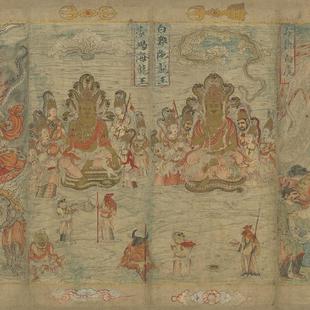 白難陀龍王
莎竭海龍王